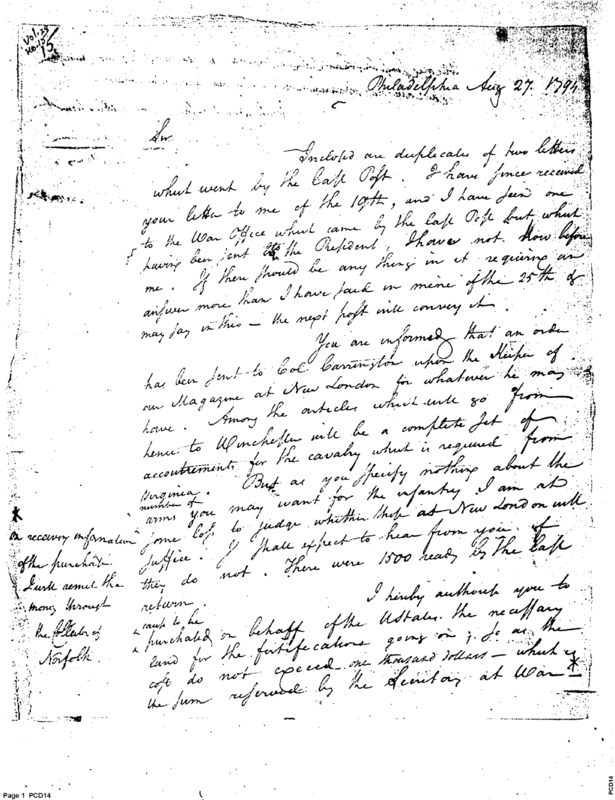 Vol. 23
No. 15
15
Philadelphia Aug 27. 1794
Sir
Inclosed are duplicates of two letters
which went by the last Post. I have since received
your letter to me of the 19th, and I have seen one
to the War Office which came by the last Post but which
having been sent to the President, I have not now before
me. If there should be any thing in it requiring an
answer more than I have said in mine of the 25th &
may say in this — the next post will convey it.
You are informed that an order
has been sent to Col Carrington upon the Keeper of
our Magazine at New London for whatever he may
have. Among the articles which will go from
hence to Winchester will be a complete set of
accoutrements for the cavalry which is required from
Virginia. But as you specify nothing about the
number of
arms you may want for the infantry I am at
some loss to judge whether those at New London will
suffice. I shall expect to hear from you if
they do not. There were 1500 ready by the last
return
I hereby authorise you to
cause to be
purchased on behalf of the UStates the necessary
land for the fortifications going on; so as the
cost do not exceed one thousand dollars — which is
the sum reserved by the Secretary at War *
*
on receiving information
of the purchase
I will remit the
money through
the Collector of
Norfolk.
Page 1 PCD14
PCD14